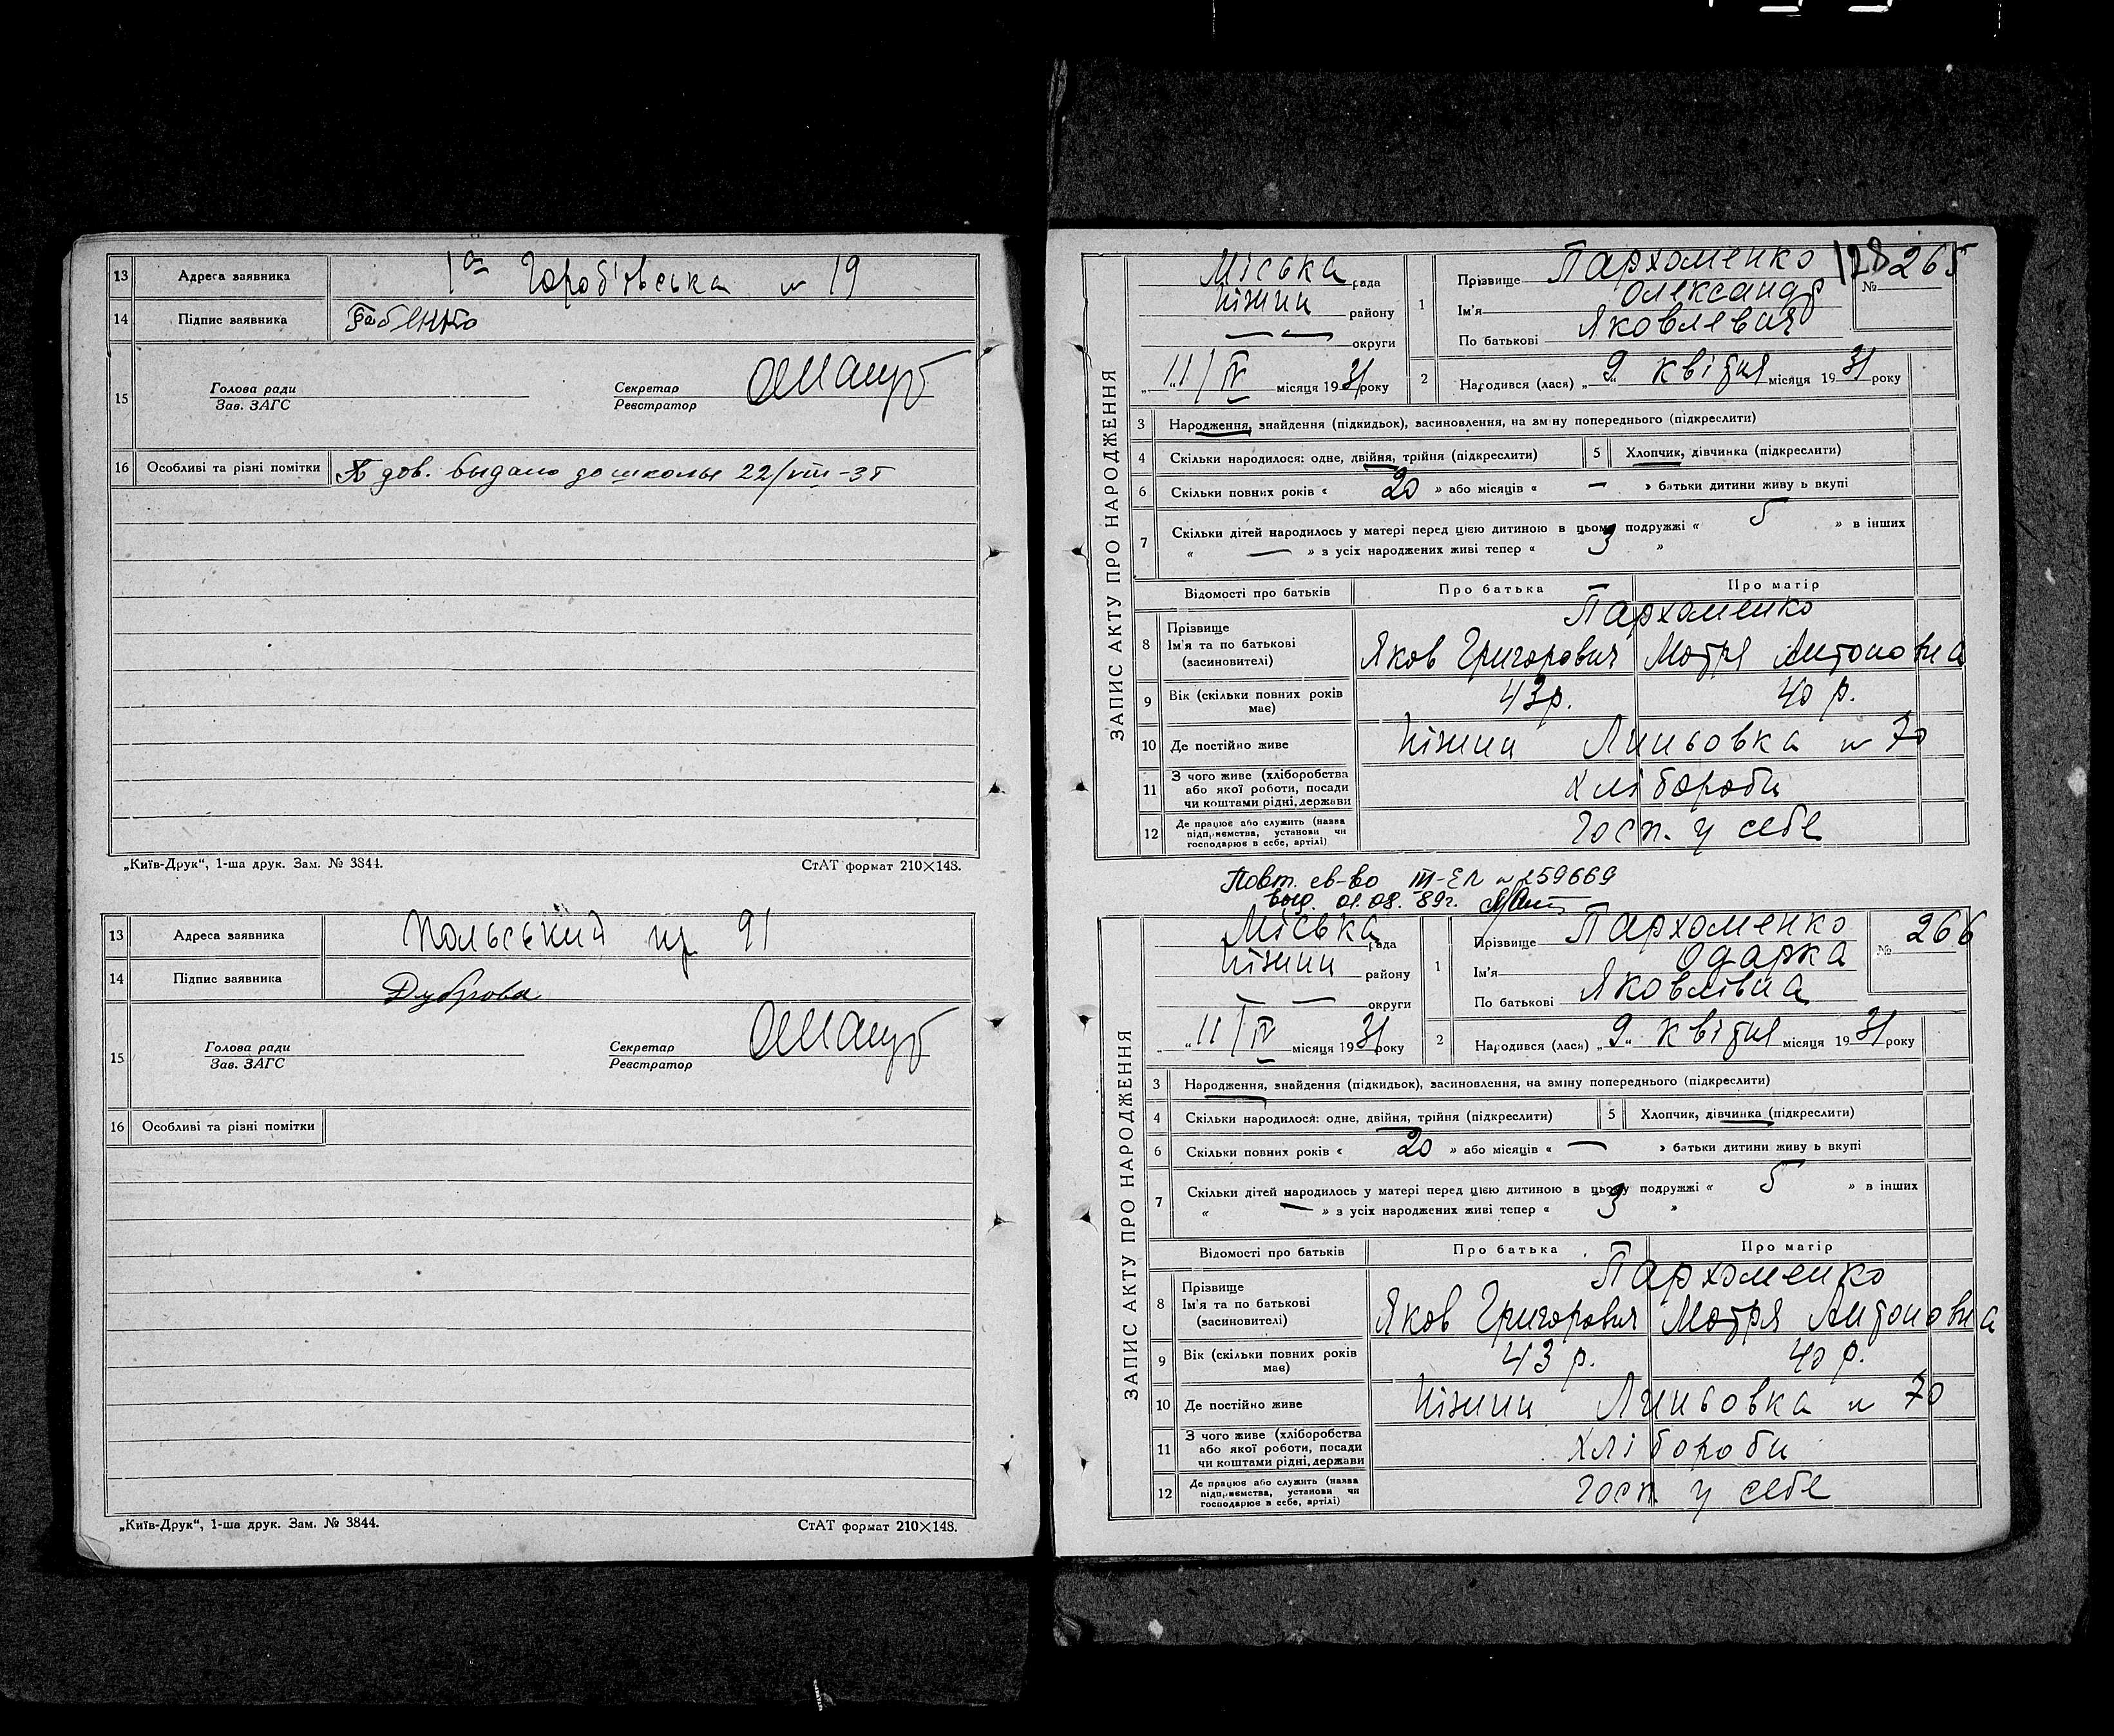 13 Адреса заявника 1ая Горобівська № 19
14 Підпис заявника Бабенко
15 Голова ради Зав. ЗАГС Секретар Реєстратор
16 Особливі та різні помітки дов. выдано до школы 22/VIII-38
„Київ-Друк“, 1-ша друк. Зам. № 3844. СтАТ формат 210×148.
13 Адреса заявника Польський 91
14 Підпис заявника Дуброва
15 Голова ради Зав. ЗАГС Секретар Реєстратор
16 Особливі та різні помітки
„Київ-Друк“, 1-ша друк. Зам. № 3844. СтАТ формат 210×148.
128
ЗАПИС АКТУ ПРО НАРОДЖЕННЯ
Міська рада
Ніжин району
— — округи
„11/IV місяця 1931 року
1 Прізвище Пархоменко № 265
Ім'я Олександр
По батькові Яковлевич
2 Народився (лася) „9„ квітня місяця 1931 року
3 Народження, знайдення (підкидьок), засиновлення, на зміну попереднього (підкреслити)
4 Скільки народилося: одне, двійня, трійня (підкреслити) 5 Хлопчик, дівчинка (підкреслити)
6 Скільки повних років « 20 » або місяців « — » батьки дитини живу ь вкупі
7 Скільки дітей народилось у матері перед цією дитиною в цьому подружжі « 5 » в інших
« — » з усіх народжених живі тепер « 3 »
Відомості про батьків Про батька Про матір
8 Прізвище Пархоменко
Ім'я та по батькові Яков Григорович Мотря Антоновна
(засиновителі)
9 Вік (скільки повних років має) 43 р. 40 р.
10 Де постійно живе Ніжин Линьовка № 70
11 З чого живе (хліборобства або якої роботи, посади чи коштами рідні, держави Хлібороби
12 Де працює або служить (назва підприємства, установи чи господарює в себе, артілі) Госп. у себе
Повт. св-во III-ЕЛ № 259669
выд. 01.08.89г.
ЗАПИС АКТУ ПРО НАРОДЖЕННЯ
Міська рада
Ніжин району
— — округи
„11/IV місяця 1931 року
1 Прізвище Пархоменко № 266
Ім'я Одарка
По батькові Яковлівна
2 Народився (лася) „9„ квітня місяця 1931 року
3 Народження, знайдення (підкидьок), засиновлення, на зміну попереднього (підкреслити)
4 Скільки народилося: одне, двійня, трійня (підкреслити) 5 Хлопчик, дівчинка (підкреслити)
6 Скільки повних років « 20 » або місяців « — » батьки дитини живу ь вкупі
7 Скільки дітей народилось у матері перед цією дитиною в цьому подружжі « 5 » в інших
« — » з усіх народжених живі тепер « 3 »
Відомості про батьків Про батька Про матір
8 Прізвище Пархоменко
Ім'я та по батькові Яков Григорович Мотря Антоновна
(засиновителі)
9 Вік (скільки повних років має) 43 р. 40 р.
10 Де постійно живе Ніжин Линьовка № 70
11 З чого живе (хліборобства або якої роботи, посади чи коштами рідні, держави Хлібороби
12 Де працює або служить (назва підприємства, установи чи господарює в себе, артілі) Госп. у себе